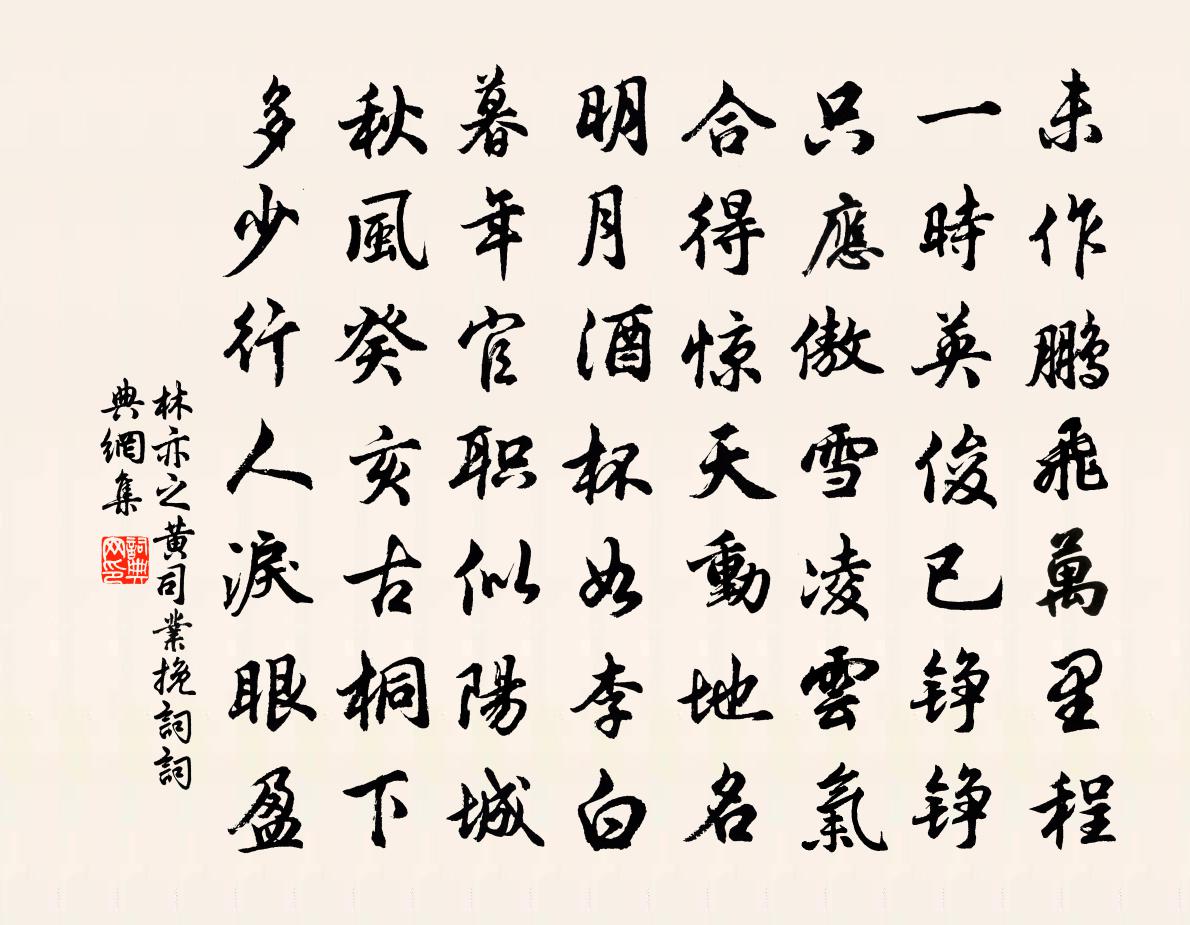 未作鵬飛萬里程
一時英俊已錚錚
只應傲雪凌雲氣
合得惊天動地名
明月酒杯如李白
暮年官职似陽城
秋風癸亥古桐下
多少行人淚眼盈
林亦之黄司業挽詞詞
典網集
詞典網印